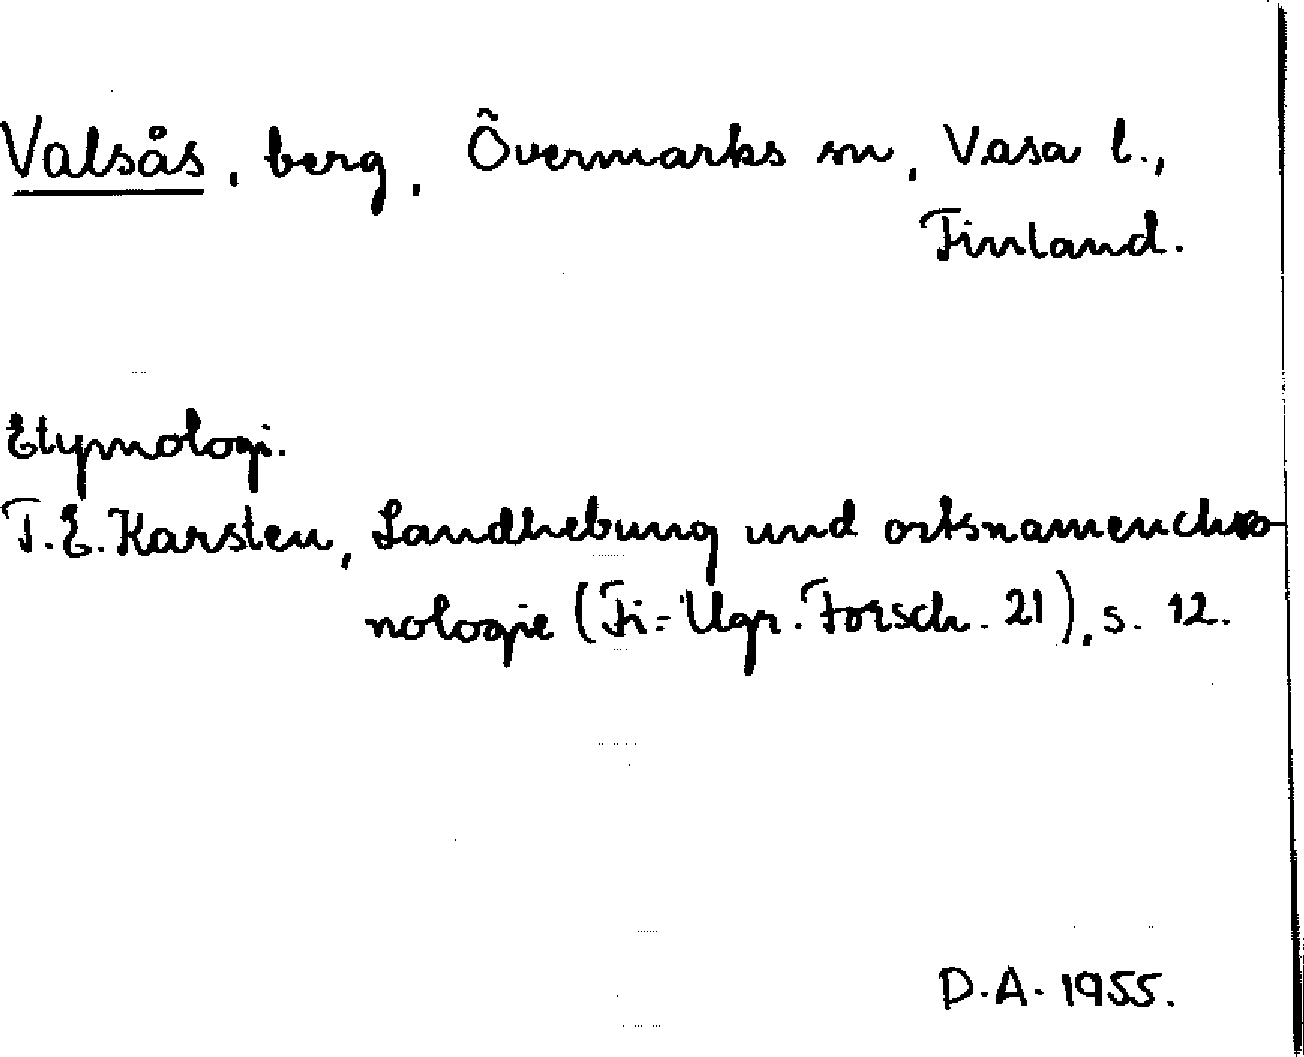 Valsås, berg, Övermarks sn, Vasa l.,
Finland.
Etymologi.
T.E. Karsten, Landhebung und ortsnamenchro-
nologie (Fi-Ugr. Forsch. 21), s. 12.
D.A. 1955.